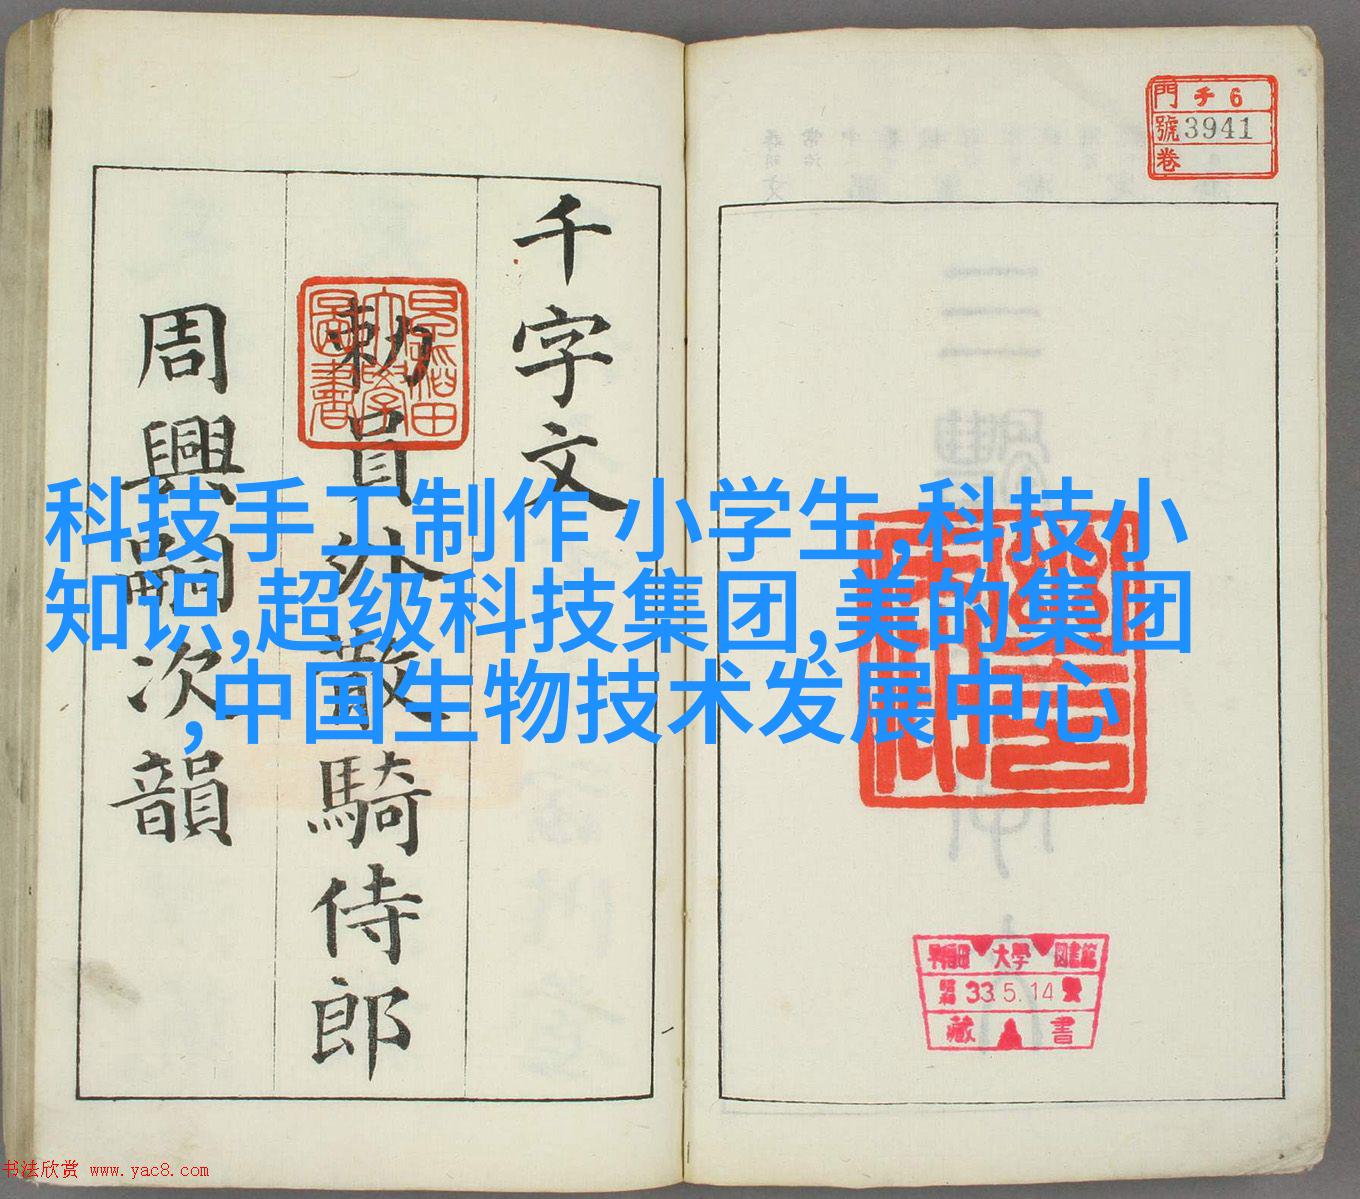 門 チ6
號 3941
卷
千字文
勅員外散騎侍郎
周興嗣次韻
早稲田大學圖書
科技手工制作 小学生,科技小
知识,超级科技集团,美的集团
,中国生物技术发展中心
早稲田 大學 図書館
昭和 33.5.14
蔵 書
书法欣赏 www.yac8.com